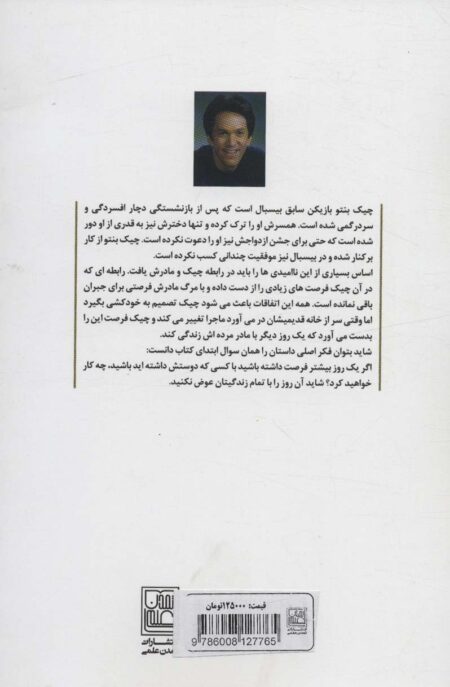 چیک بنتو بازیکن سابق بیسبال است که پس از بازنشستگی دچار افسردگی و
سردرگمی شده است. همسرش او را ترک کرده و تنها دخترش نیز به قدری از او دور
شده است که حتی برای جشن ازدواجش نیز او را دعوت نکرده است. چیک بنتو از کار
برکنار شده و در بیسبال نیز موفقیت چندانی کسب نکرده است.
اساس بسیاری از این ناامیدی ها را باید در رابطه چیک و مادرش یافت. رابطه ای که
در آن چیک فرصت های زیادی را از دست داده و با مرگ مادرش فرصتی برای جبران
باقی نمانده است. همه این اتفاقات باعث می شود چیک تصمیم به خودکشی بگیرد
اما وقتی سر از خانه قدیمیشان در می آورد ماجرا تغییر می کند و چیک فرصت این را
بدست می آورد که یک روز دیگر با مادر مرده اش زندگی کند.
شاید بتوان فکر اصلی داستان را همان سوال ابتدای کتاب دانست:
اگر یک روز بیشتر فرصت داشته باشید با کسی که دوستش داشته اید باشید، چه کار
خواهید کرد؟ شاید آن روز را با تمام زندگیتان عوض نکنید.
قیمت: ۱۲۵۰۰۰تومان
9 786008 127765
تمدن علمی